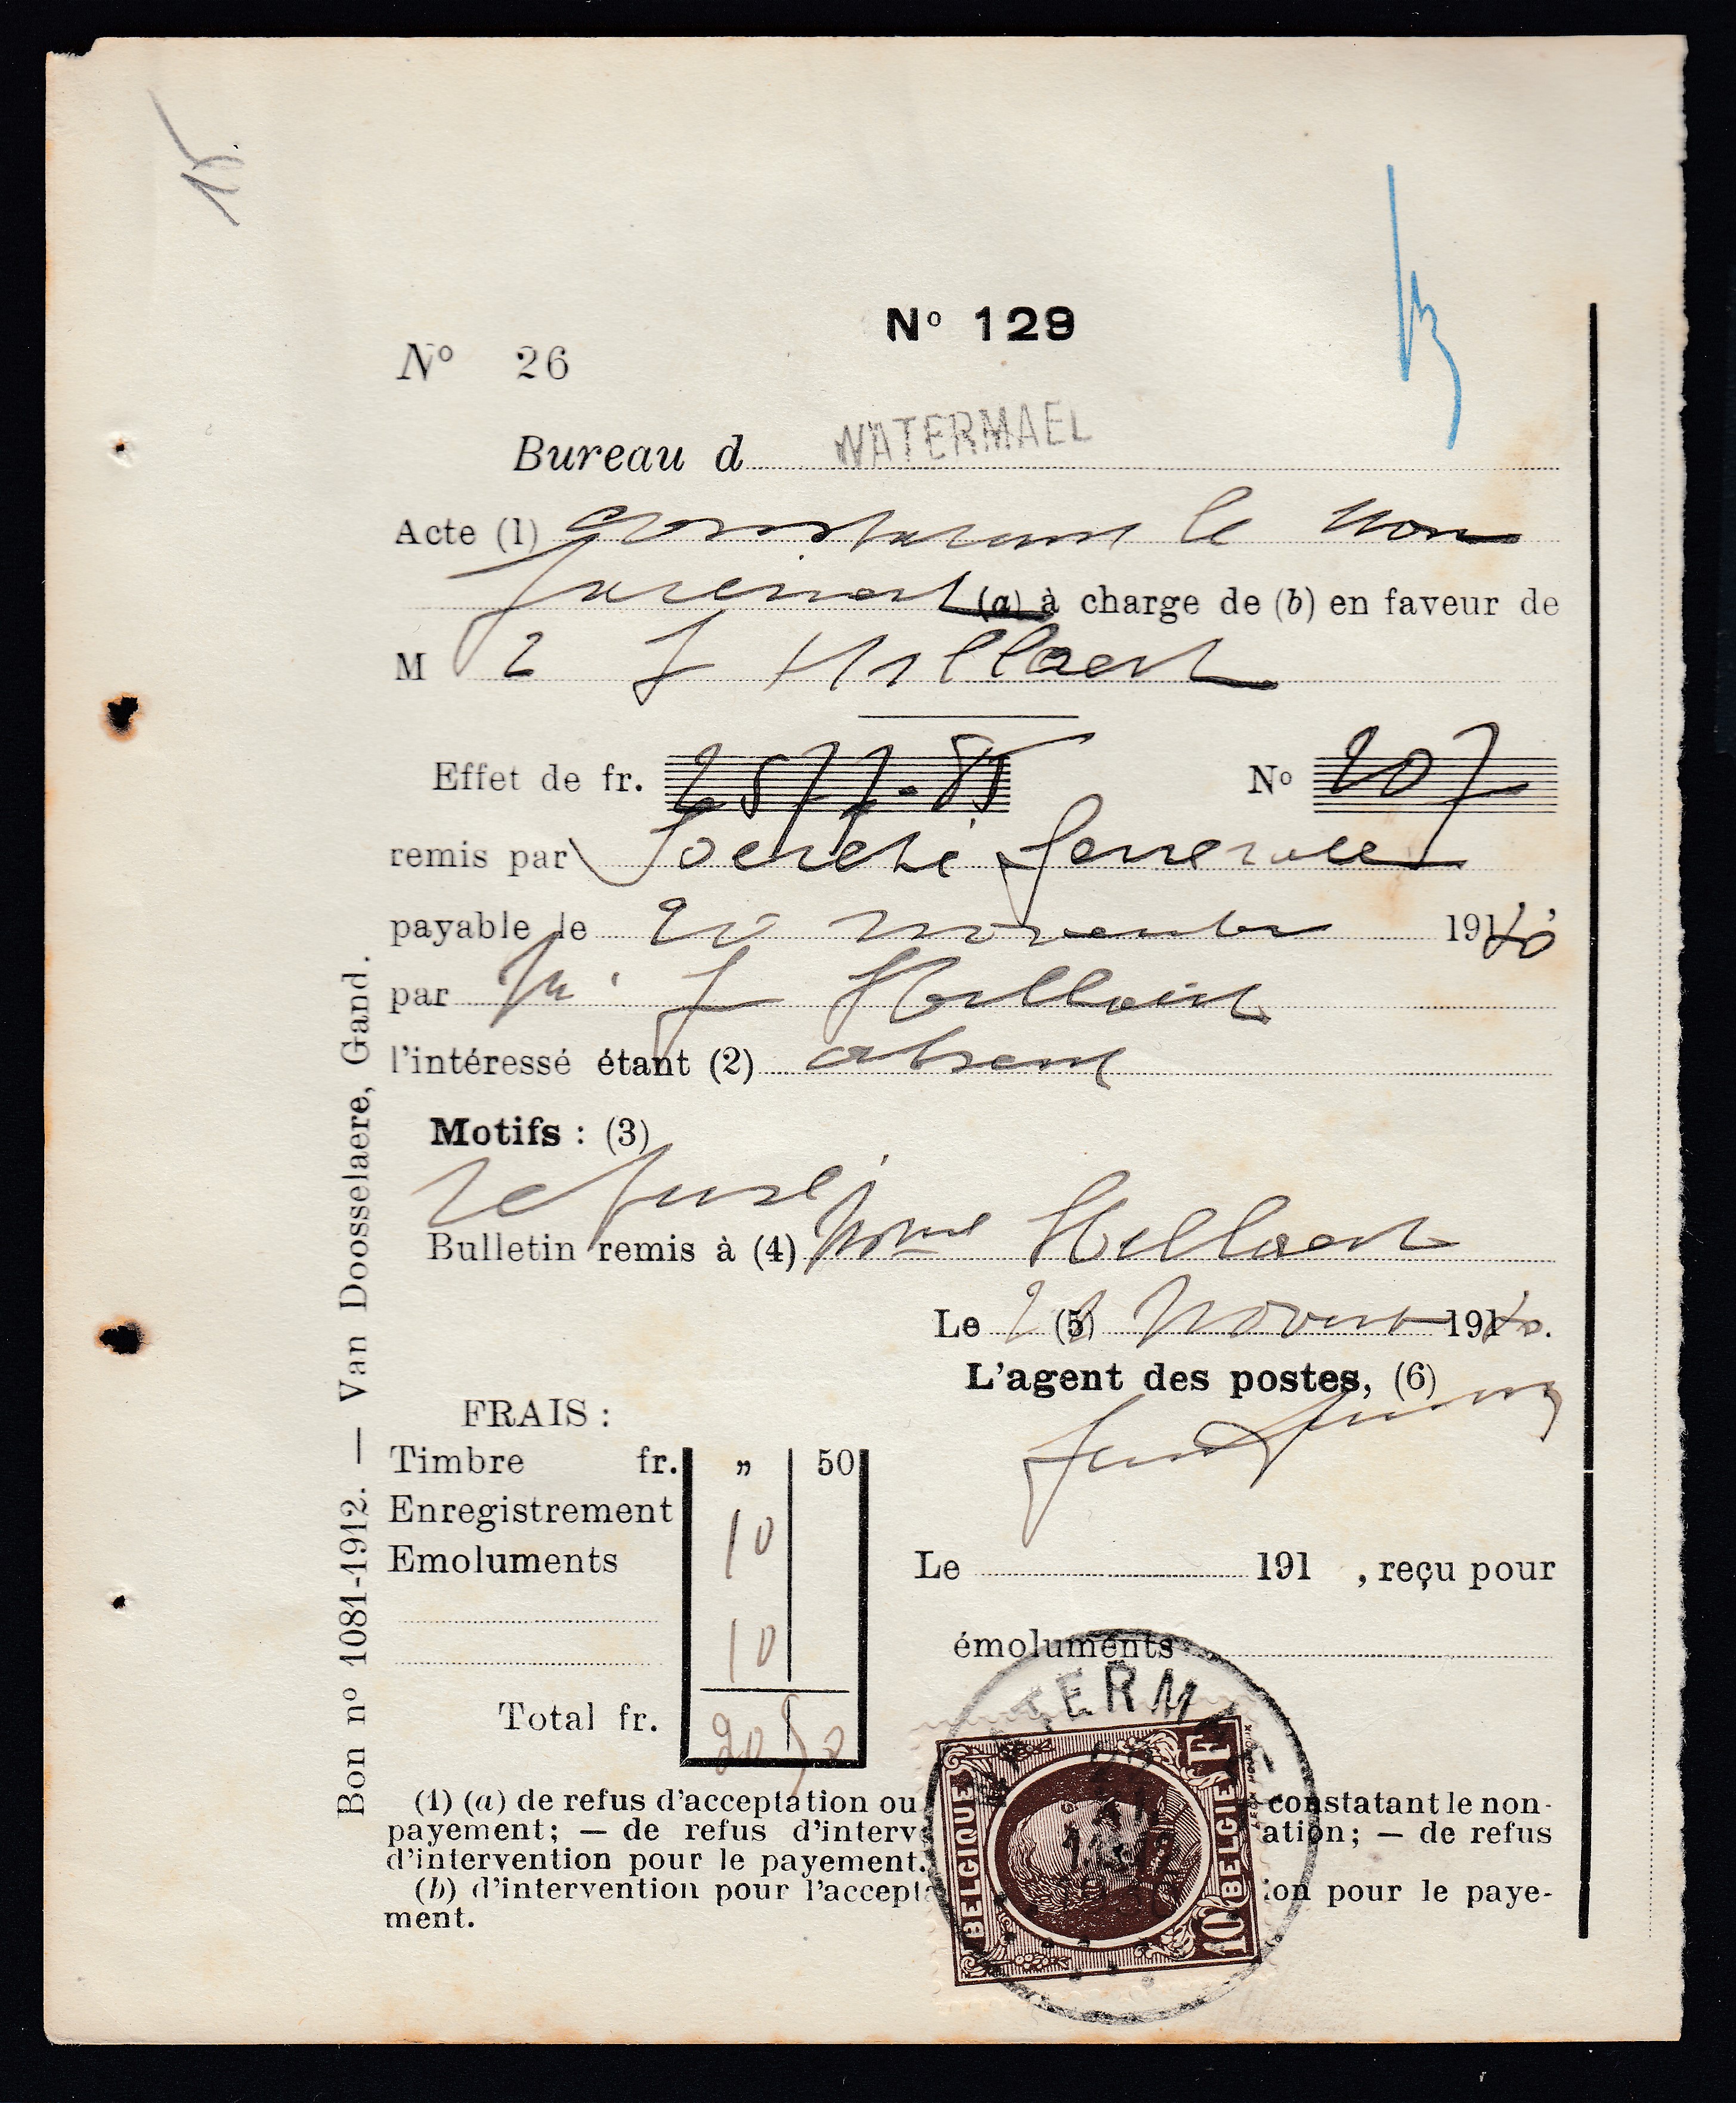 15.
Nº 129
Nº 26
Bureau d WATERMAEL
Acte (1) Constatant le non
paiement (a) à charge de (b) en faveur de
M J Hellaert
Effet de fr. 2577.85 Nº 207
remis par Société Generale
payable le 20 novembre 191
par M. J Hellaert
l'intéressé étant (2) absent
Motifs : (3)
refusé
Bulletin remis à (4) Mme Hellaert
Le (5) Novembre 191
L'agent des postes, (6)
FRAIS :
Timbre fr. „ 50
Enregistrement 10
Emoluments
10
Total fr. 20 50
Le 191 , reçu pour
émoluments
(1) (a) de refus d'acceptation ou constatant le non-
payement; — de refus d'interv ation; — de refus
d'intervention pour le payement.
(b) d'intervention pour l'accepta ion pour le paye-
ment.
Bon nº 1081-1912. — Van Doosselaere, Gand.
WATERMAEL
BELGIQUE
10 BELGIË Fr